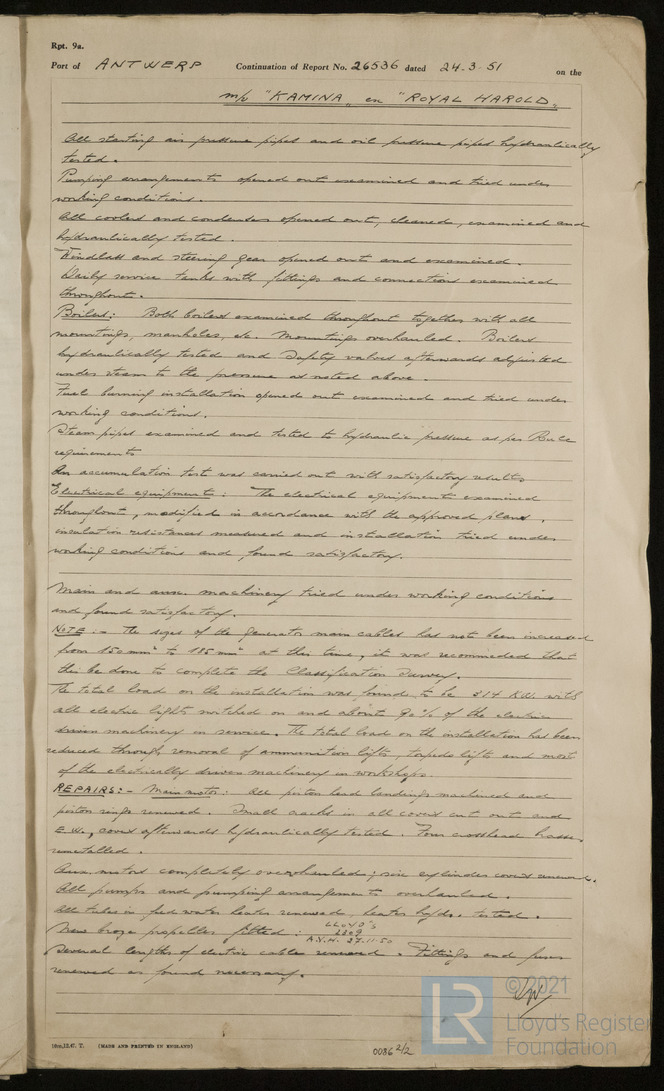 Rpt. 9a.
Port of ANTWERP Continuation of Report No. 26536 dated 24-3-51 on the
m/v "KAMINA" ex "ROYAL HAROLD"
All starting air pressure pipes and oil pressure pipes hydraulically
tested.
Pumping arrangements opened out examined and tried under
working conditions.
All coolers and condensers opened out, cleaned, examined and
hydraulically tested.
Windlass and steering gear opened out and examined.
Daily service tanks with fittings and connections examined
throughout.
Boilers: Both boilers examined throughout together with all
mountings, manholes, etc. Mountings overhauled. Boilers
hydraulically tested and Safety valves afterwards adjusted
under steam to the pressure as noted above.
Fuel burning installation opened out examined and tried under
working conditions.
Steam pipes examined and tested to hydraulic pressure as per Rule
requirements
An accumulation test was carried out with satisfactory results
Electrical equipments: The electrical equipment examined
throughout, modified in accordance with the approved plans,
insulation resistances measured and installation tried under
working conditions and found satisfactory.
Main and aux. machinery tried under working conditions
and found satisfactory.
NOTE:- The sizes of the generator main cables has not been increased
from 150 mm² to 185 mm² at this time, it was recommended that
this be done to complete the Classification Survey.
The total load on the installation was found to be 314 KW. with
all electric lights switched on and about 90% of the electric
driven machinery in service. The total load on the installation has been
reduced through removal of ammunition lifts, torpedo lifts and most
of the electrically driven machinery in workshops.
REPAIRS:- Main motor: All piston head landings machined and
piston rings renewed. Small cracks in all covers cut out and
E.W., covers afterwards hydraulically tested. Four crosshead brasses
remetalled.
Aux. motors completely overhauled; six cylinder covers renewed.
All pumps and pumping arrangements overhauled.
All tubes in feed water heater renewed, heater hydr. tested.
New bronze propeller fitted: LLOYD'S
A.V.H. 27.11.50
Several lengths of electric cable renewed. Fittings and fuses
renewed as found necessary.
10m,12,47. T. (MADE AND PRINTED IN ENGLAND)
0086 2/2
© 2021
LR
Lloyd's Register
Foundation